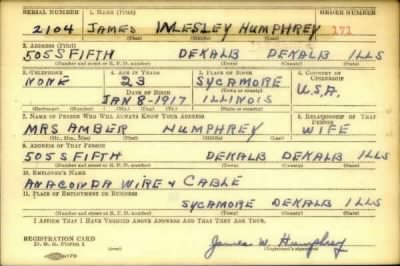 SERIAL NUMBER 1. NAME (Print) ORDER NUMBER
2104 JAMES WESLEY HUMPHREY 171
(First) (Middle) (Last)
2. ADDRESS (Print)
505 S FIFTH DEKALB DEKALB ILLS
(Number and street or R. F. D. number) (Town) (County) (State)
3. TELEPHONE 4. AGE IN YEARS 5. PLACE OF BIRTH 6. COUNTRY OF CITIZENSHIP
NONE 23 SYCAMORE
DATE OF BIRTH (Town or county) U.S.A.
JAN 8-1917 ILLINOIS
(Exchange) (Number) (Mo.) (Day) (Yr.) (State or country)
7. NAME OF PERSON WHO WILL ALWAYS KNOW YOUR ADDRESS 8. RELATIONSHIP OF THAT PERSON
MRS AMBER HUMPHREY WIFE
(Mr., Mrs., Miss) (First) (Middle) (Last)
9. ADDRESS OF THAT PERSON
505 S FIFTH DEKALB DEKALB ILLS
(Number and street or R. F. D. number) (Town) (County) (State)
10. EMPLOYER'S NAME
ANACONDA WIRE & CABLE
11. PLACE OF EMPLOYMENT OR BUSINESS
SYCAMORE DEKALB ILLS
(Number and street or R. F. D. number) (Town) (County) (State)
I AFFIRM THAT I HAVE VERIFIED ABOVE ANSWERS AND THAT THEY ARE TRUE.
REGISTRATION CARD
D. S. S. FORM 1 James W. Humphrey
(Registrant's signature)